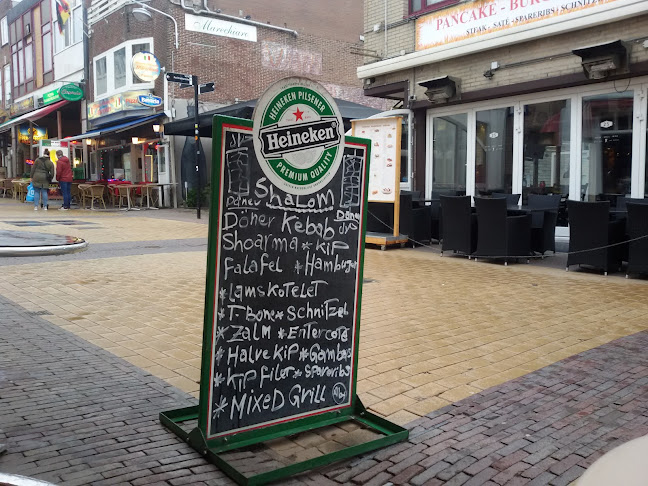 PANCAKE - BUR
STEAK - SATÉ - SPARERIBS - SCHNITZ
Marechiaro
HEINEKEN PILSENER
Heineken
PREMIUM QUALITY
Shalom
Döner
Döner Kebab
Shoarma * Kip
Falafel * Hamburger
* Lamskotelet
* T-Bone * Schnitzel
* Zalm * Entercote
* Halve Kip * Gambas
* Kip Filet * Spareribs
* Mixed Grill